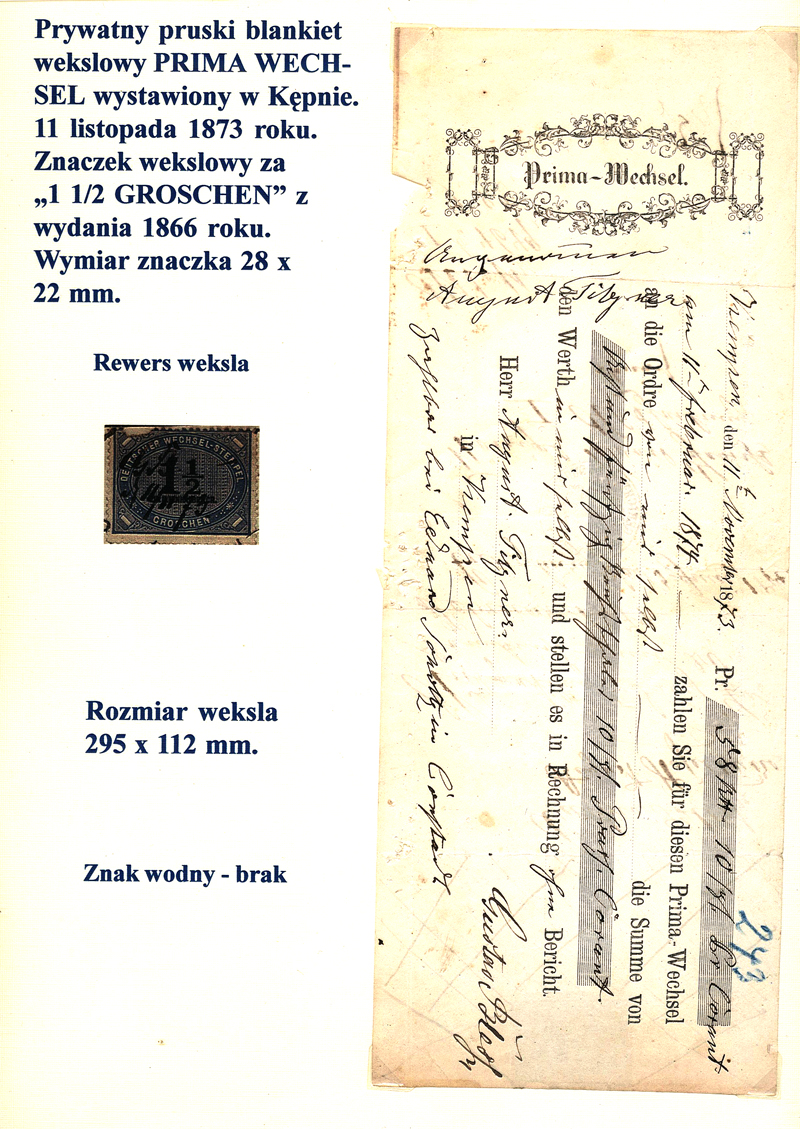 Prywatny pruski blankiet
wekslowy PRIMA WECH-
SEL wystawiony w Kępnie.
11 listopada 1873 roku.
Znaczek wekslowy za
„1 1/2 GROSCHEN” z
wydania 1866 roku.
Wymiar znaczka 28 x
22 mm.
Rewers weksla
DEUTSCHER WECHSEL-STEMPEL
1 1/2
GROSCHEN
Rozmiar weksla
295 x 112 mm.
Znak wodny - brak
Prima-Wechsel.
Kempen, den 11t November 1873. Pr. 58 10 Pr Corant
am 11t Februar 1874. zahlen Sie für diesen Prima-Wechsel
an die Ordre von mir selbst die Summe von
Acht und fünfzig 10 Corant.
den Werth in mir selbst; und stellen es in Rechnung ohne Bericht.
Herr August
in Kempen
Gustav
Angenommen
August
Zahlbar bei Eduard in
243